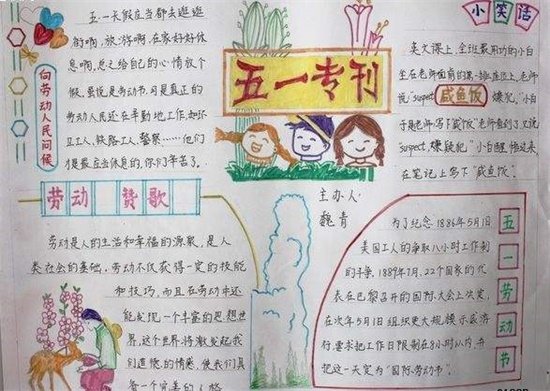 向劳动人民问候
五一长假应当都去逛逛
街啊,旅游啊,在家好好休
息啊,总之给自己的心情放个
假,虽说是劳动节,可是真正的
劳动人民还在辛勤地工作,如环
卫工人、铁路工人、警察……他们
才是最应当休息的,你们辛苦了。
五一专刊
小笑话
英文课上,全班最用功的小白
坐在老师面前的第一排座位上,老师
说"suspect
咸鱼饭
嫌犯,"小白
于是
写下"咸鱼饭"老师看到了,又说
"suspect,嫌疑犯"小白醒悟过来
在笔记上写下"咸鱼饭"。
劳动赞歌
劳动是人的生活和幸福的源泉,是人
类社会的基础,劳动不仅获得一定的技能
和技巧,而且在劳动中还
能发现一个丰富的思想世
界,这个世界将激发起我
们道德的情感,使我们具
备一个完美的人格
主办人:
魏青
五一劳动节
为了纪念1886年5月1日
美国工人的争取八小时工作制
的斗争,1889年7月,22个国家的代
表在巴黎召开的国际大会上决定,
在次年5月1日组织更大规模示威游
行,要求把工作日限制在8小时以内,并
把这一天定为"国际劳动节"。